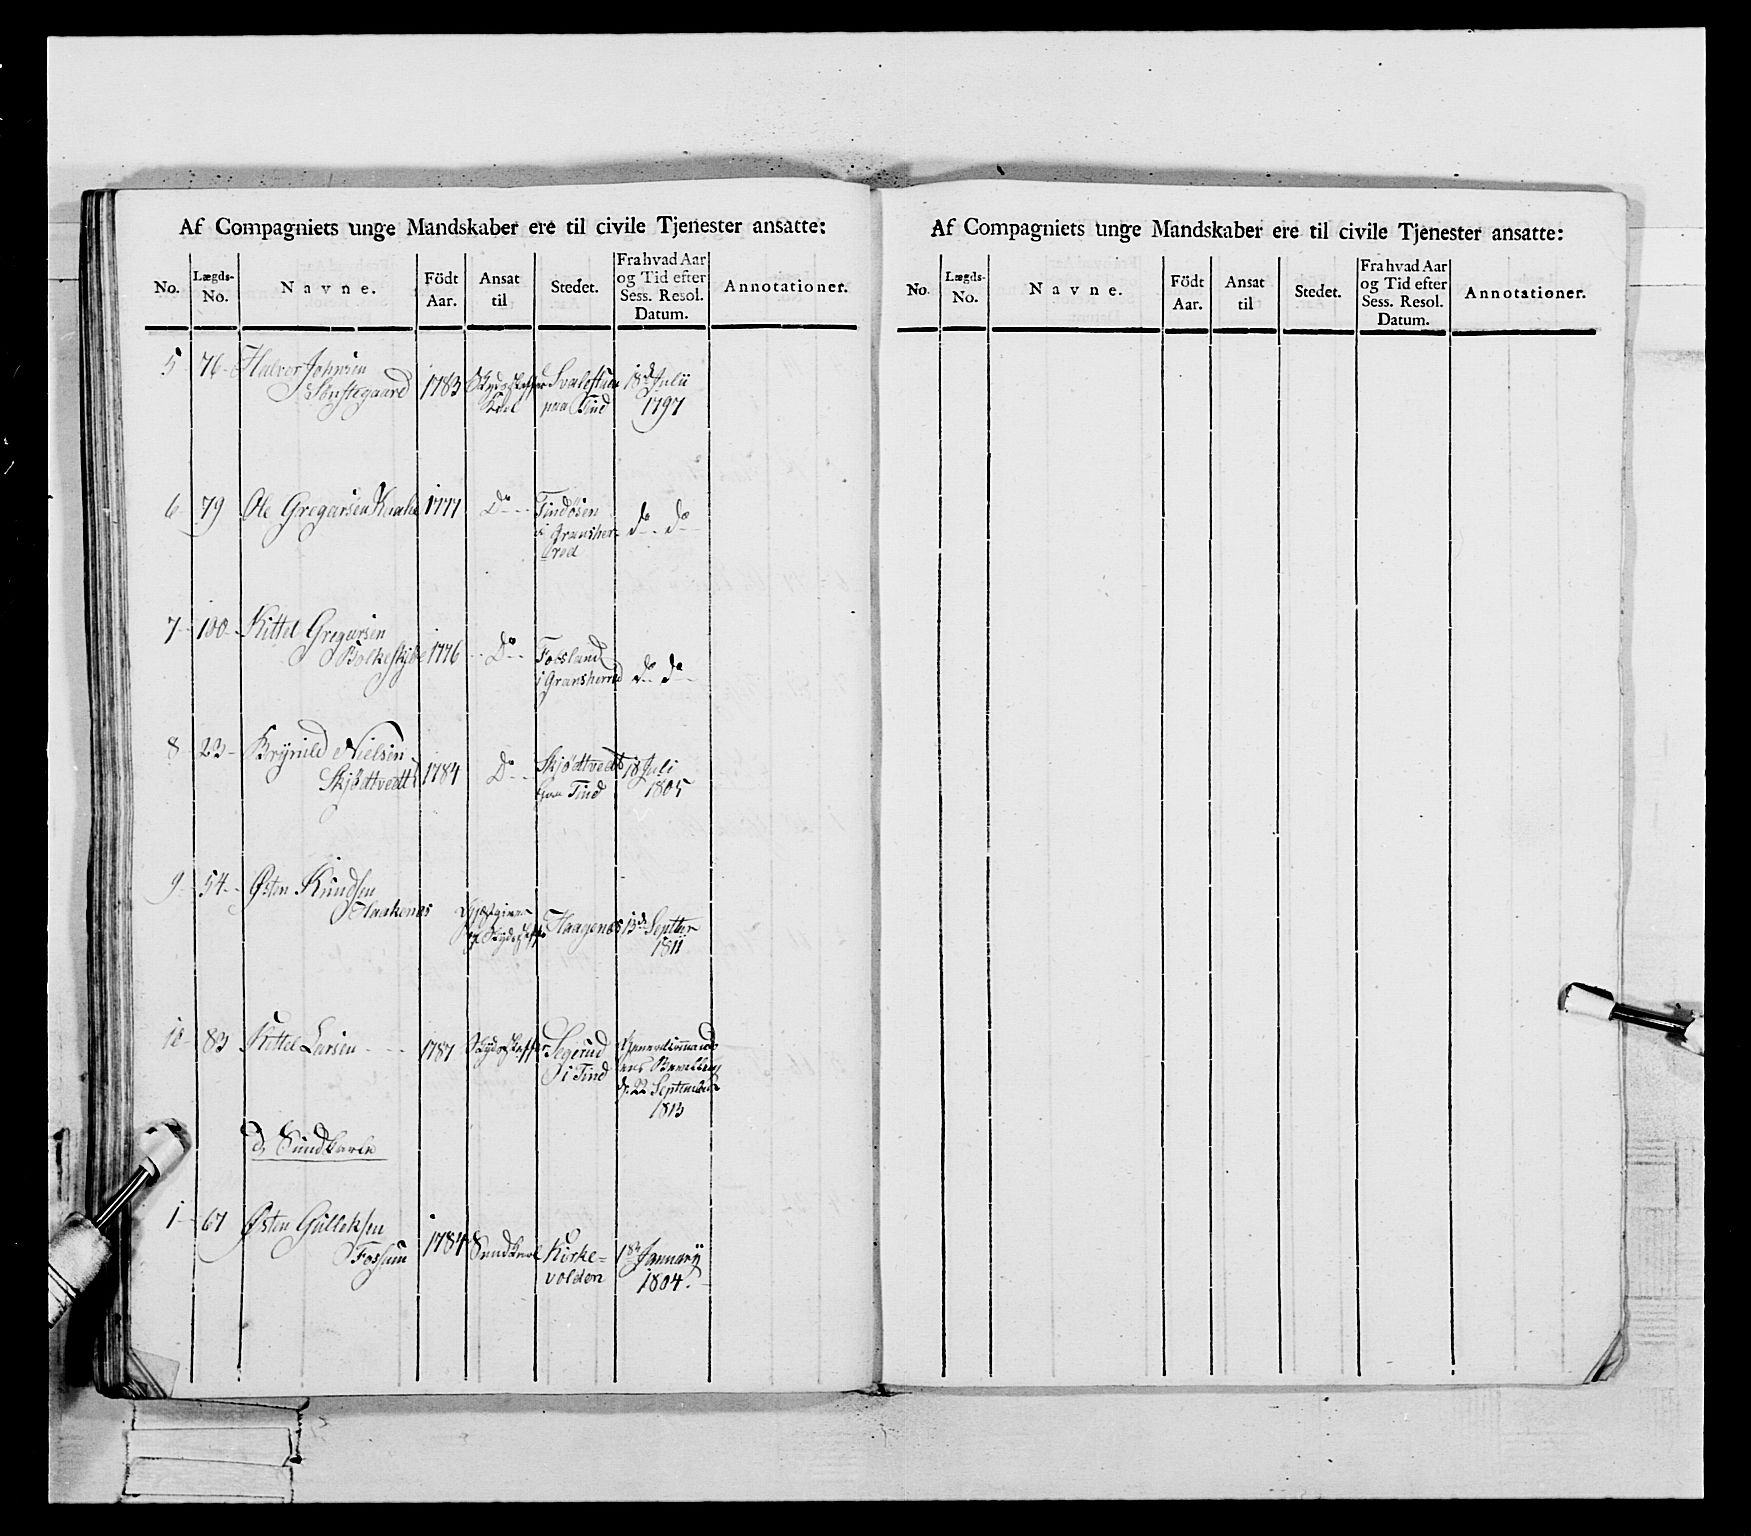 Af Compagniets unge Mandskaber ere til civile Tjenester ansatte:
No. Lægds-No. Navne. Födt Aar. Ansat til Stedet. Fra hvad Aar og Tid efter Sess. Resol. Datum. Annotationer.
5 76 Halvor Johnsen
Sønstegaard 1783 Skydsskaffer Svalestuen 18de Julii
Karl paa Tind 1797
6 79 Ole Gregarsen 1777 Do Tindósen
i Gransher- do do
red
7 100 Kittel Gregarsen
Bolkeskybe 1776 Do Fosland
i Gransherred do do
8 23 Brynild Nielsen
Skjødtvedt 1784 Do Skjødtvedt 18 Juli
paa Tind 1805
9 54 Østen Knudsen
Haakenæs Gjæstgiver
og Skydsskaffer Haagenæs 13de Septbr
1811
10 83 Kittel Larsen 1787 Skydsskaffer Segerud
i Tind
d. 22 September
1813
d, Sundkarle
1 67 Østen Gulleksen
Fossum 1784 Sundkarl Kirke-
volden 1ste Januarii
1804.
Af Compagniets unge Mandskaber ere til civile Tjenester ansatte:
No. Lægds-No. Navne. Födt Aar. Ansat til Stedet. Fra hvad Aar og Tid efter Sess. Resol. Datum. Annotationer.